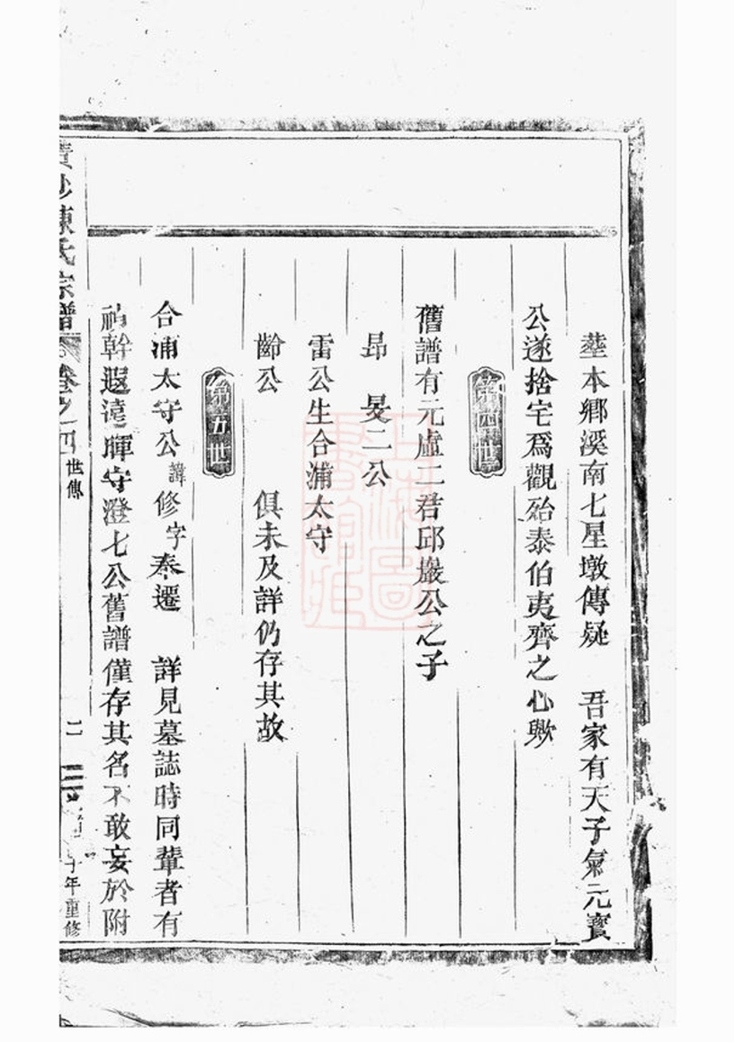 塟本鄉溪南七星墩傳疑　吾家有天子氣元寳
公遂捨宅爲觀殆泰伯夷齊之心歟
第四世
舊譜有元虛二君邱巖公之子
昻　旻二公
雷公生合浦太守
齡公　　俱未及詳仍存其故
第五世
合浦太守公諱修字奉遷　詳見墓誌時同輩者有
禎幹遐遠暉守澄七公舊譜僅存其名不敢妄於附
陳氏宗譜　卷之四　世傳　二　十年重修